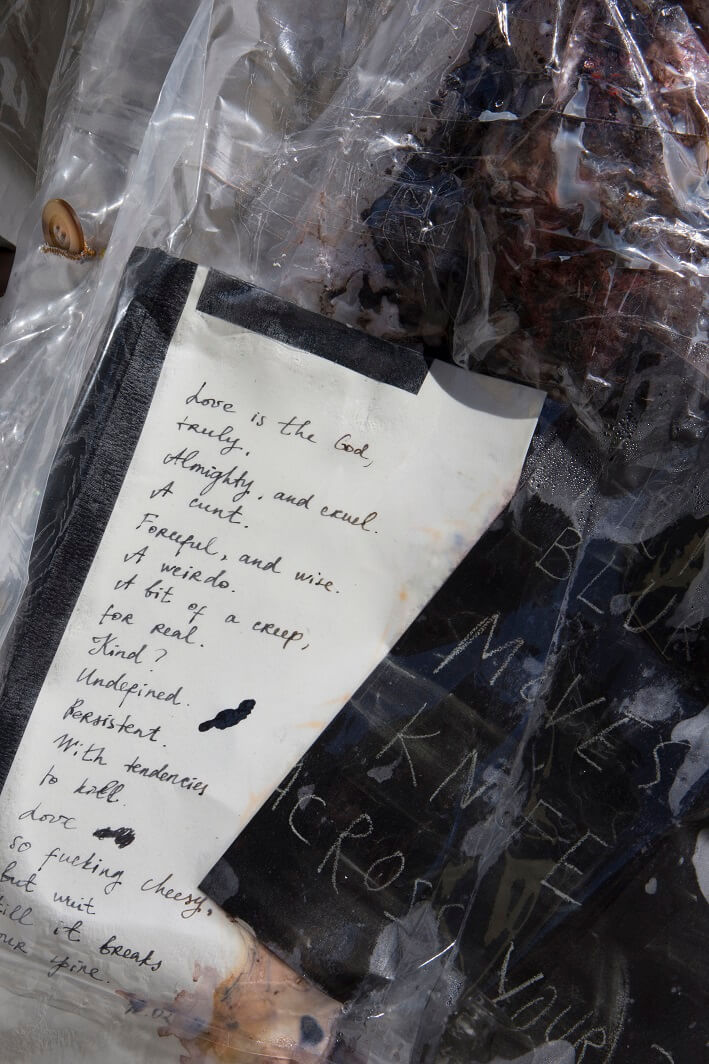 Love is the God,
truly.
Almighty, and cruel.
A cunt.
Forceful, and wise.
A weirdo.
A bit of a creep,
for real.
Kind?
Undefined.
Persistent.
With tendencies
to kill.
Love
so fucking cheesy,
but wait
till it breaks
spine.
BLU
MOVES
KNEE
ACROSS
YOUR